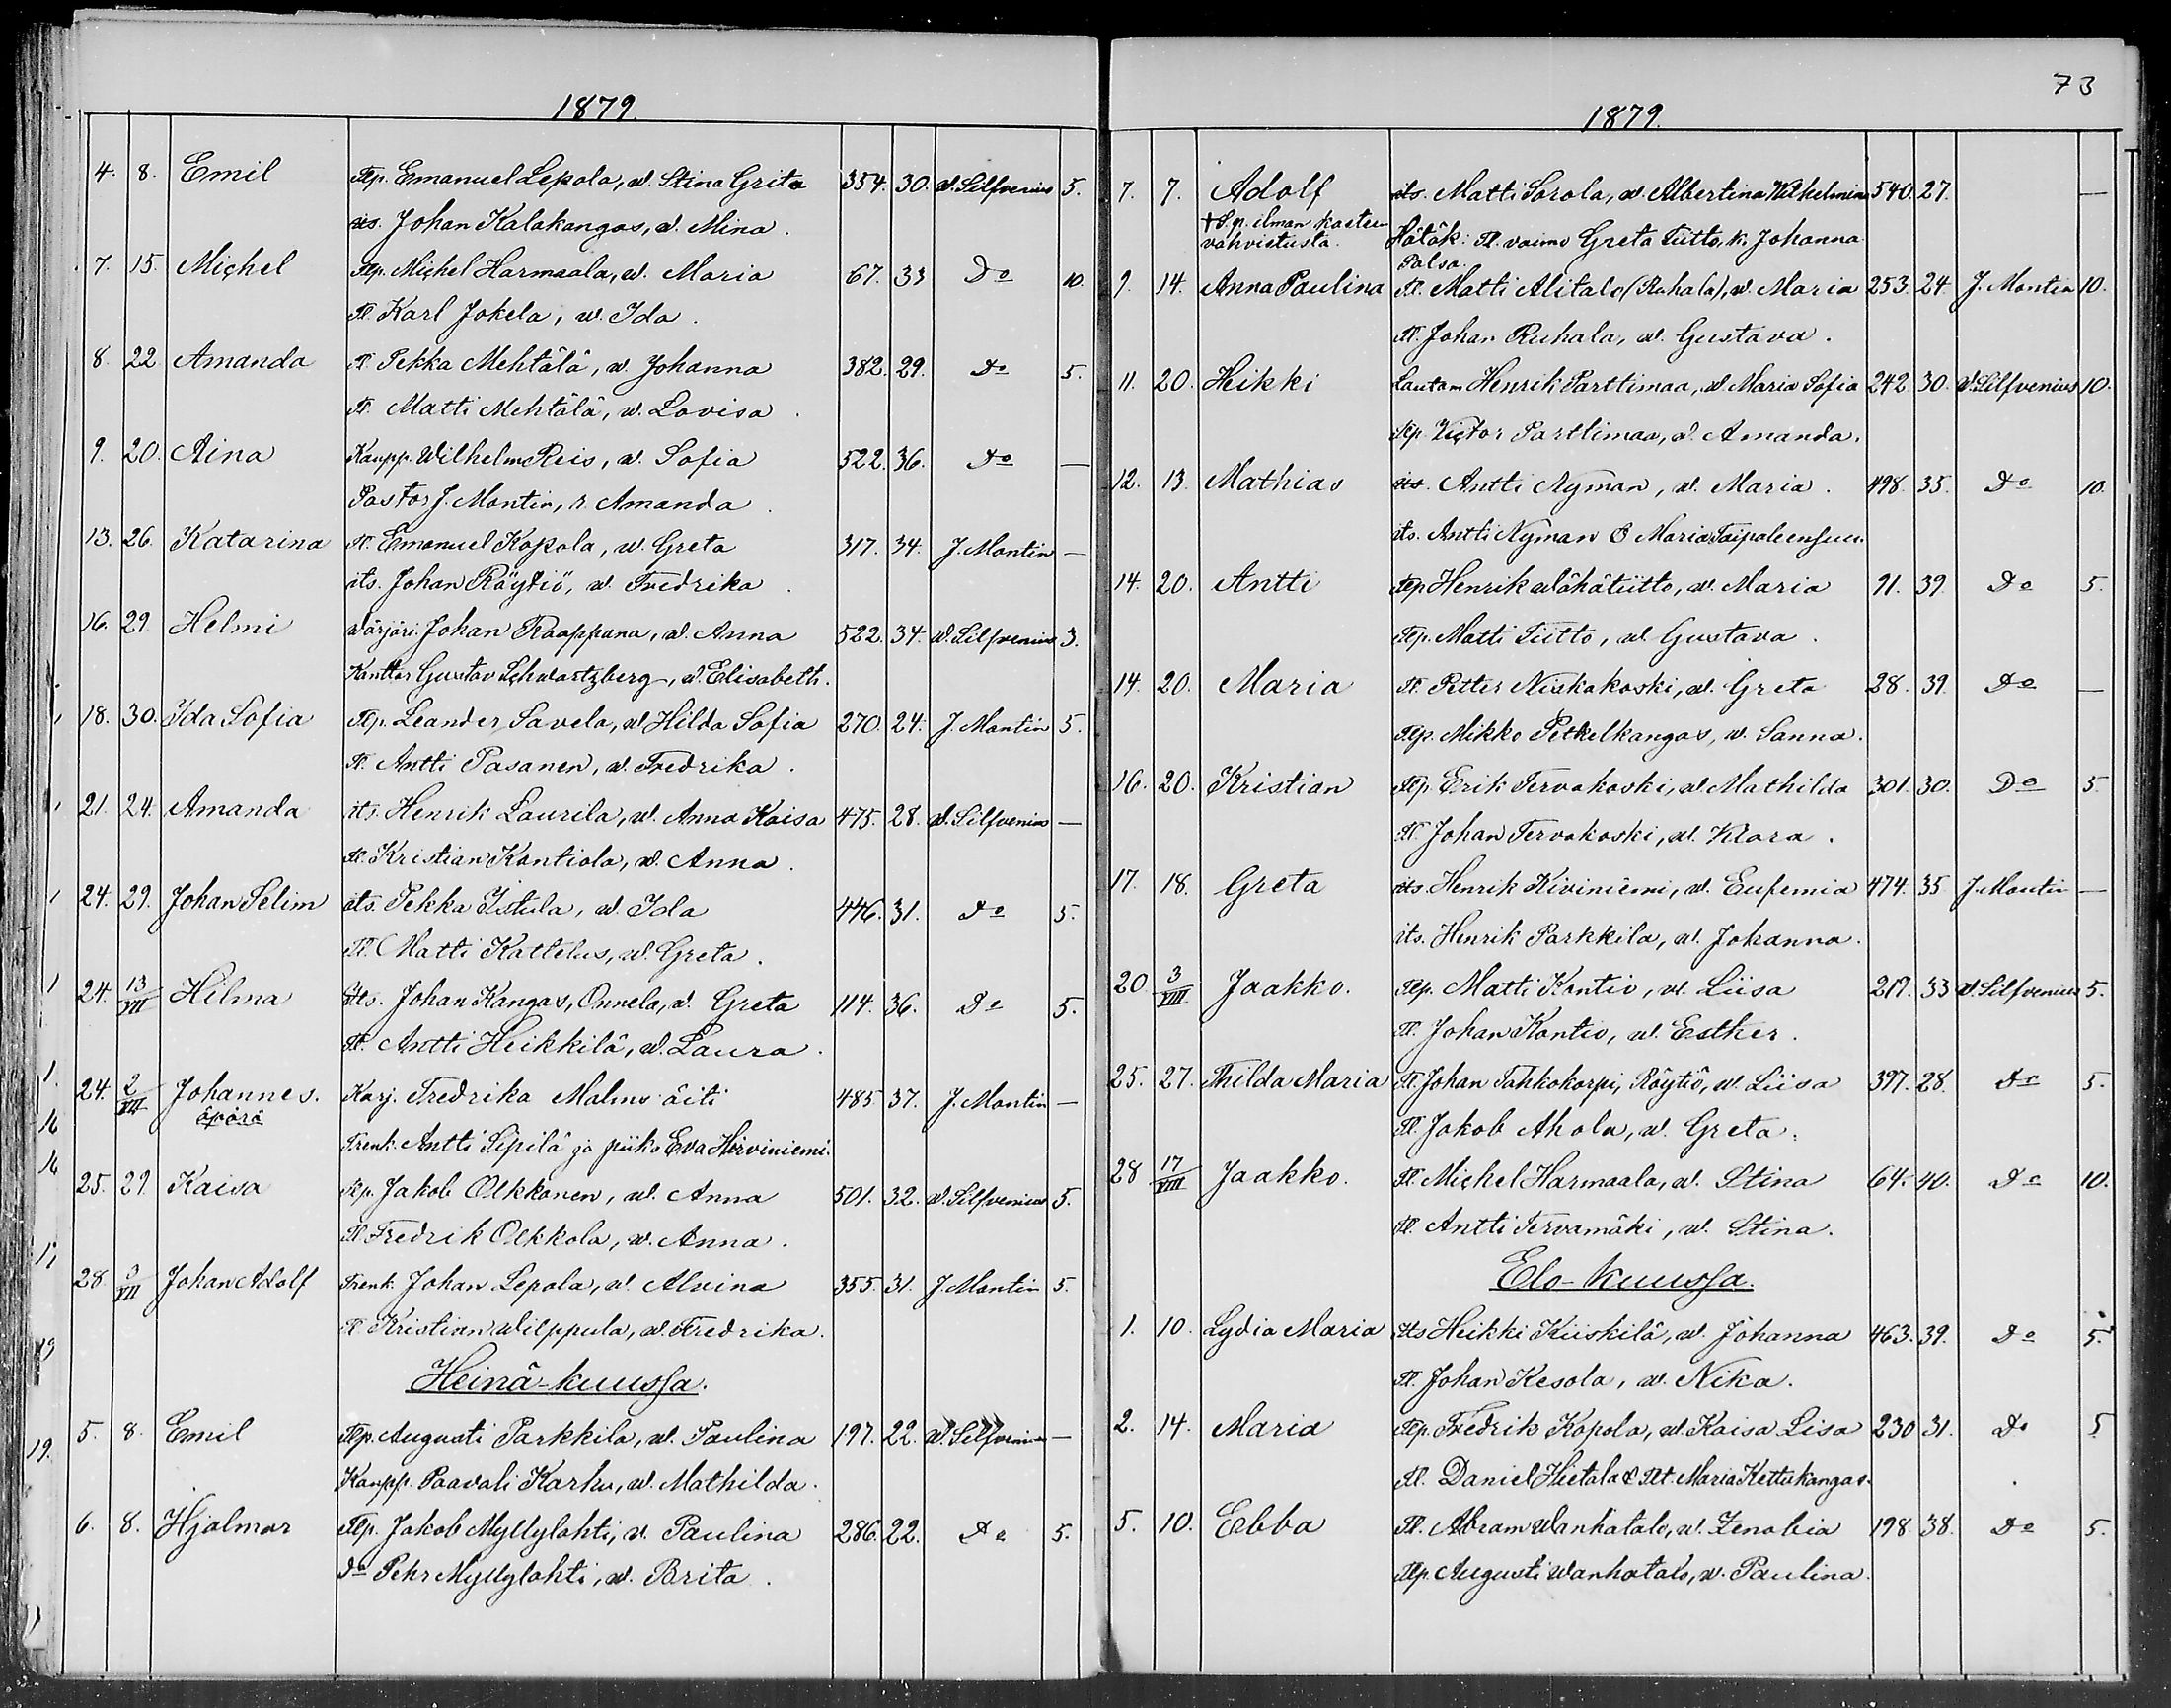 1879.
4. 8. Emil Tlp. Emanuel Lepola, w. Stina Greta 354. 30. W. Silfvenius 5.
its. Johan Kalakangas, w. Mina.
7. 15. Michel Tlp. Michel Harmaala, w. Maria 67. 33 Do 10.
Tl. Karl Jokela, w. Ida.
8. 22 Amanda Tl. Pekka Mehtälä, w. Johanna 382. 29. Do 5.
Tl. Matti Mehtälä, w. Lovisa.
9. 20. Aina Kaupp. Wilhelm Reis, w. Sofia 522. 36. Do —
Pastor J. Montin, r. Amanda.
13. 26. Katarina Tl. Emanuel Kopola, w. Greta 317. 34. J. Montin —
its. Johan Röytiö, w. Fredrika.
16. 29. Helmi Wärjäri Johan Raappana, w. Anna 522. 34. W. Silfvenius 3.
Kanttor Gustav Schwartzberg, w. Elisabeth.
18. 30. Ida Sofia Tlp. Leander Savela, w. Hilda Sofia 270. 24. J. Montin 5.
Tl. Antti Pasanen, w. Fredrika.
21. 24. Amanda its. Henrik Laurila, w. Anna Kaisa 475. 28. W. Silfvenius —
Tl. Kristian Kontiola, w. Anna.
24. 29. Johan Selim its. Pekka Istula, w. Ida 446. 31. Do 5.
Tl. Matti Kattelus, w. Greta.
24. 13/VII Hilma Its. Johan Kangas, Onnela, w. Greta 114. 36. Do 5.
Tl. Antti Heikkilä, w. Laura.
24. 2/VII Johannes. Karj. Fredrika Malms äiti 485. 37. J. Montin —
äpärä
Trenk. Antti Sipilä ja piika Eva Hirviniemi.
25. 29. Kaisa Tlp. Jakob Olkkonen, w. Anna 501. 32. W. Silfvenius 5.
Tl. Fredrik Olkkola, w. Anna.
28. /VII Johan Adolf Trenk. Johan Lepola, w. Alvina 355. 31. J. Montin 5.
Tl. Kristian Wilppula, w. Fredrika.
Heinä-kuussa.
5. 8. Emil Tlp. Augusti Parkkila, w. Paulina 197. 22. W. Silfvenius —
Kaupp. Paavali Karhu, w. Mathilda.
6. 8. Hjalmar Tlp. Jakob Myllylahti, w. Paulina 286. 22. Do 5.
Do Pehr Myllylahti, w. Brita.
73
1879.
7. 7. Adolf its. Matti Sorola, w. Albertina Wilhelmina 540. 27. —
† S. p. ilman kasteen
vahvistusta. Hätäk: Tl. vaimo Greta Tiitto, k. Johanna
Palsa.
9. 14. Anna Paulina Tl. Matti Alitalo (Ruhala), w. Maria 253. 24. J. Montin 10.
Tl. Johan Ruhala, w. Gustava.
11. 20. Heikki Lautam Henrik Parttimaa, w. Maria Sofia 242. 30. W. Silfvenius 10.
Tlp. Victor Parttimaa, w. Amanda.
12. 13. Mathias its. Antti Nyman, w. Maria. 498. 35. Do 10.
its. Antti Nyman & Maria Taipaleensuu.
14. 20. Antti Tlp Henrik Wähätiitto, w. Maria 91. 39. Do 5.
Tlp. Matti Tiitto, w. Gustava.
14. 20. Maria Tl. Petter Niskakoski, w. Greta 28. 39. Do —
Tlp. Mikko Petkelkangas, w. Sanna.
16. 20. Kristian Tlp. Erik Tervakoski, w. Mathilda 301. 30. Do 5.
Tl. Johan Tervakoski, w. Klara.
17. 18. Greta its. Henrik Kiviniemi, w. Eufemia 474. 35 J. Montin —
its. Henrik Parkkila, w. Johanna.
20. 3/VIII Jaakko. Tlp. Matti Kontio, w. Liisa 217. 33 W. Silfvenius 5.
Tl. Johan Kontio, w. Esther.
25. 27. Thilda Maria Tl. Johan Tahkokorpi, Röytiö, w. Liisa 397. 28. Do 5.
Tl. Jakob Ahola, w. Greta.
28 17/VIII Jaakko. Tl. Michel Harmaala, w. Stina 64. 40. Do 10.
Tl. Antti Tervamäki, w. Stina.
Elo-kuussa.
1. 10. Lydia Maria Its Heikki Kiiskilä, w. Johanna 463. 39. Do 5.
Tl. Johan Kesola, w. Nika.
2. 14. Maria Tlp. Fredrik Kopola, w. Kaisa Lisa 230 31. Do 5.
Tl. Daniel Hietala & Tlt. Maria Kettukangas.
5. 10. Ebba Tl. Abram Wanhatalo, w. Zenobia 198. 38. Do 5.
Tlp. Augusti Wanhatalo, w. Paulina.